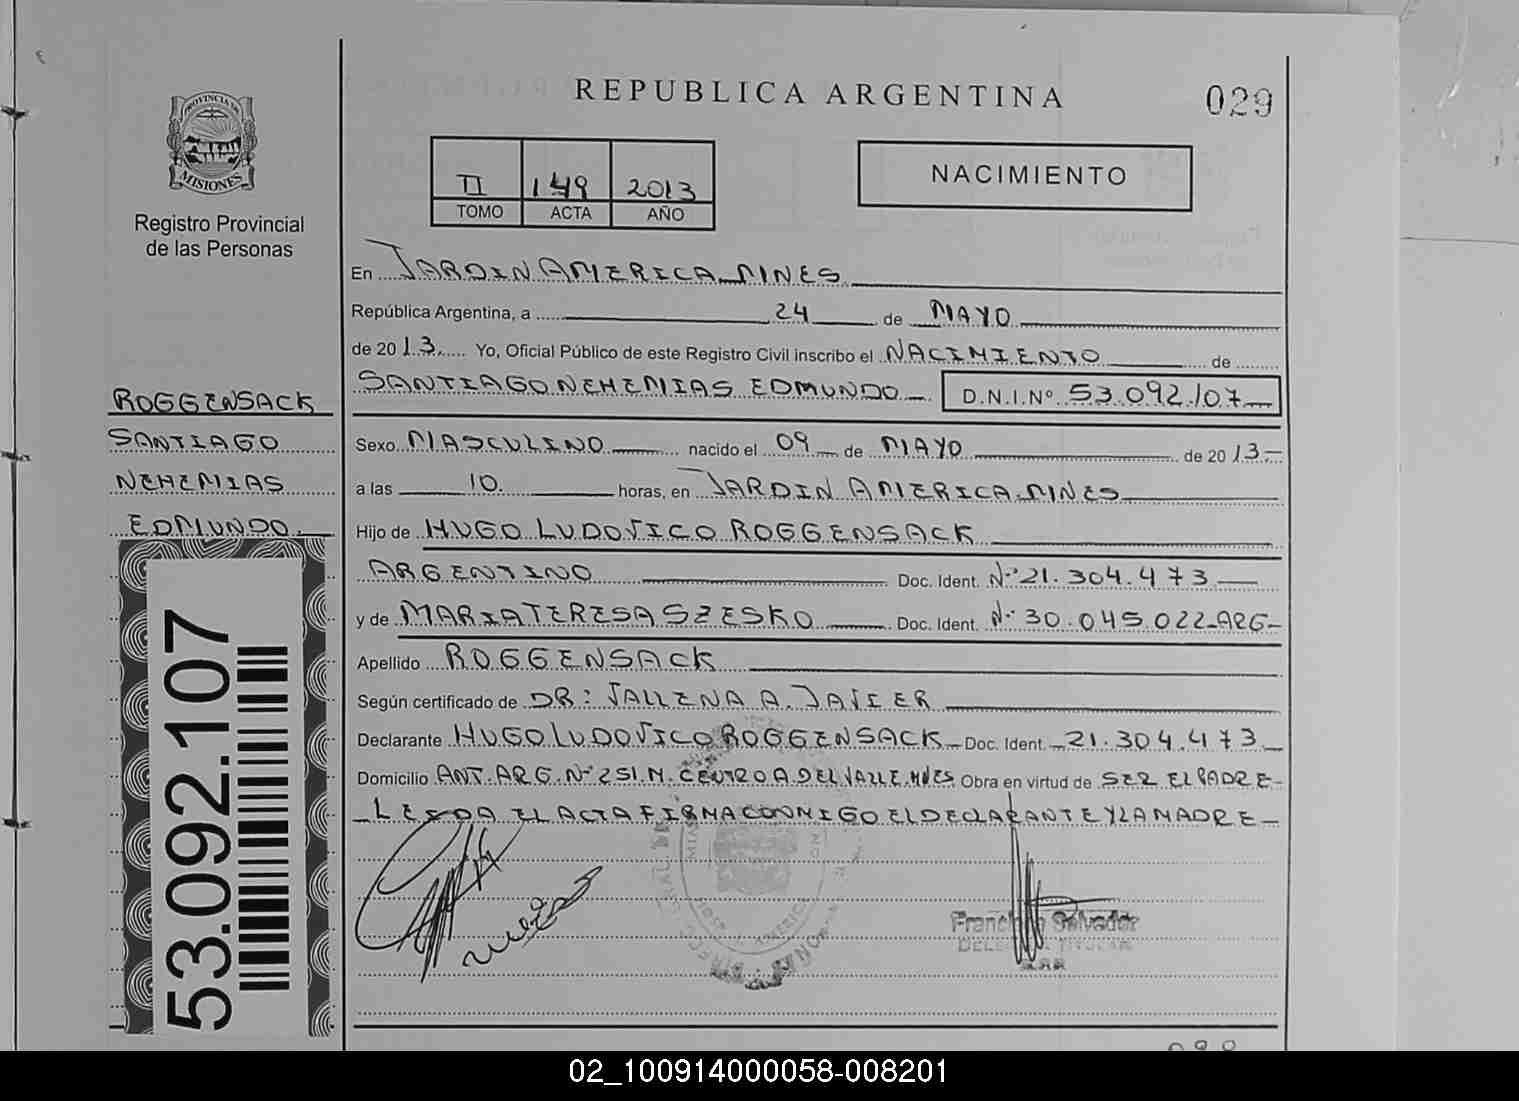 REPUBLICA ARGENTINA
029
PROVINCIA DE
MISIONES
Registro Provincial
de las Personas
II 149 2013
TOMO ACTA AÑO
NACIMIENTO
En JARDIN AMERICA MNES
República Argentina, a 24 de MAYO
de 2013. Yo, Oficial Público de este Registro Civil inscribo el NACIMIENTO de
SANTIAGO NEHEMIAS EDMUNDO D.N.I.Nº 53.092.107
ROGGENSACK
SANTIAGO
NEHEMIAS
EDMUNDO
Sexo MASCULINO nacido el 09 de MAYO de 2013
a las 10. horas, en JARDIN AMERICA MNES
Hijo de HUGO LUDOVICO ROGGENSACK
ARGENTINO Doc. Ident. Nº 21.304.473
y de MARIA TERESA SZESKO Doc. Ident. Nº 30.045.022-ARG-
Apellido ROGGENSACK
Según certificado de DR: VALLENA A. JAVIER
Declarante HUGO LUDOVICO ROGGENSACK Doc. Ident. 21.304.473
Domicilio ANT. ARG. Nº 251. M. CENTRO A. DEL VALLE. MNES Obra en virtud de SER EL PADRE-
-LEIDA EL ACTA FIRMA CONMIGO EL DECLARANTE Y LA MADRE-
53.092.107
Salvador
02_100914000058-008201